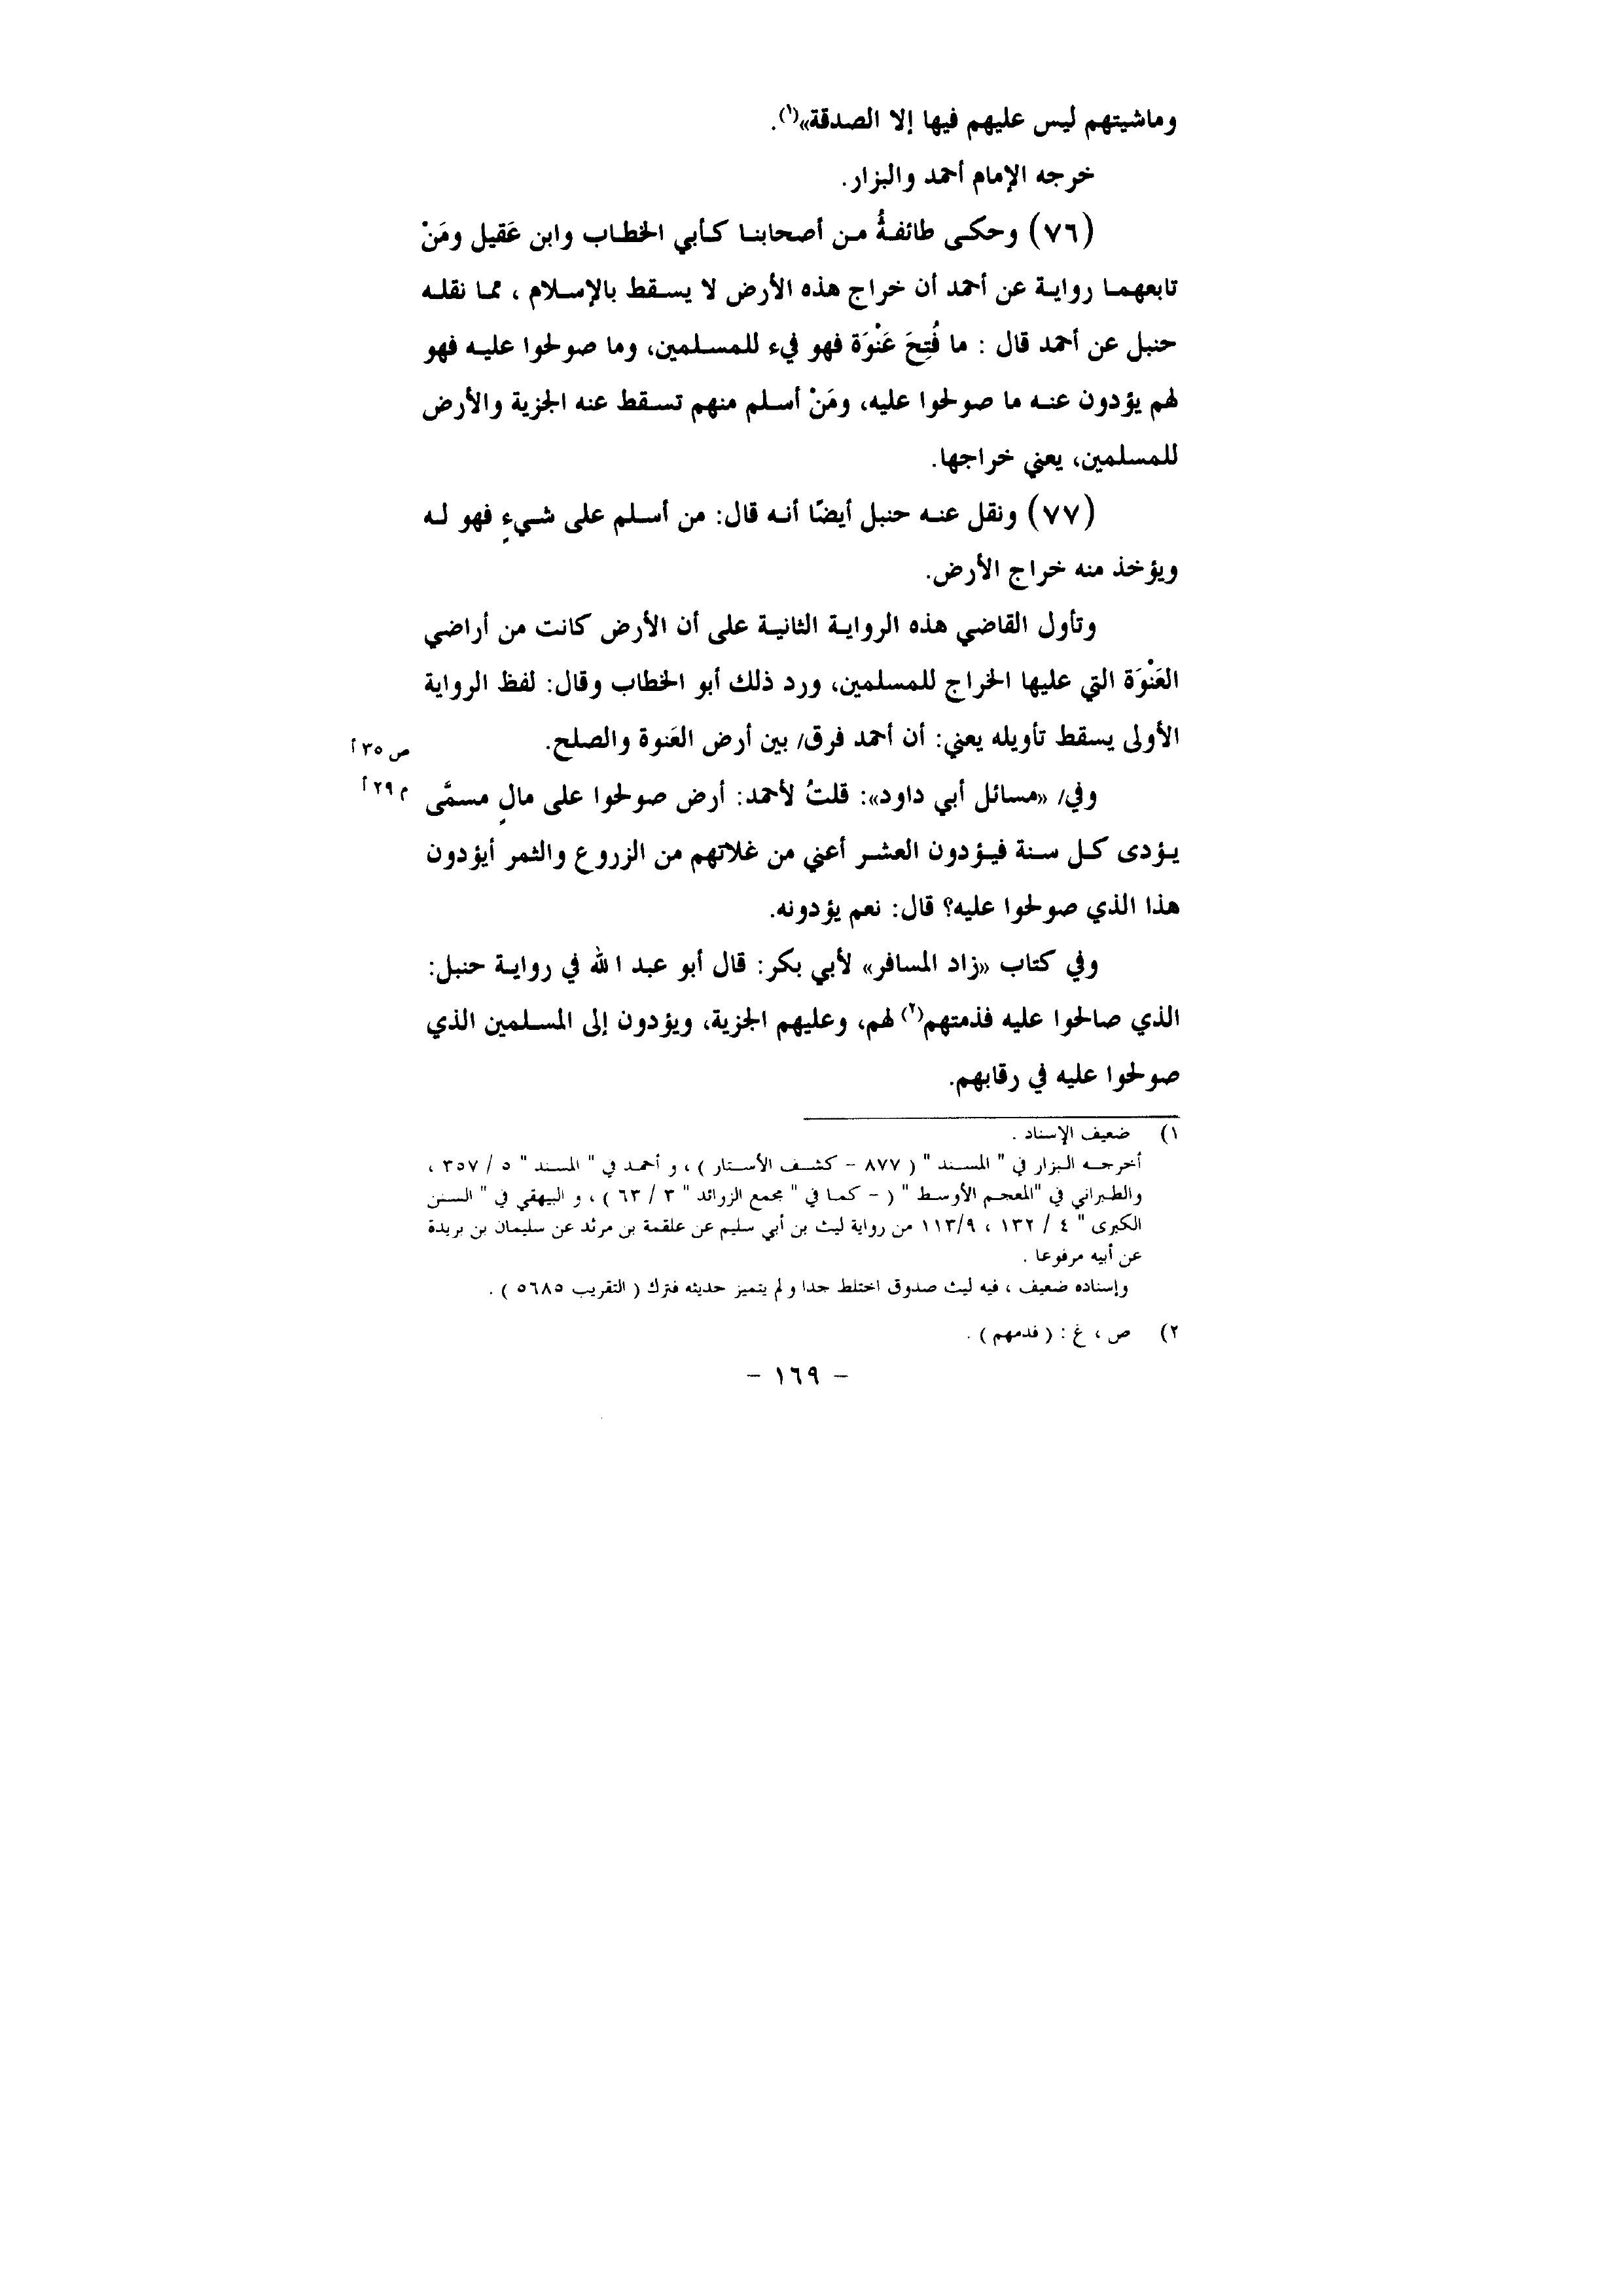 وماشيتهم ليس عليهم فيها إلا الصدقة»(١).
خرجه الإمام أحمد والبزار.
(٧٦) وحكى طائفةُ من أصحابنا كأبي الخطاب وابن عَقيل ومَنْ
تابعهما رواية عن أحمد أن خراج هذه الأرض لا يسقط بالإسلام ، مما نقله
حنبل عن أحمد قال : ما فُتِحَ عَنْوَة فهو فيء للمسلمين، وما صولحوا عليه فهو
لهم يؤدون عنه ما صولحوا عليه، ومَنْ أسلم منهم تسقط عنه الجزية والأرض
للمسلمين، يعني خراجها.
(٧٧) ونقل عنه حنبل أيضًا أنه قال: من أسلم على شيءٍ فهو له
ويؤخذ منه خراج الأرض.
وتأول القاضي هذه الرواية الثانية على أن الأرض كانت من أراضي
العَنْوَة التي عليها الخراج للمسلمين، ورد ذلك أبو الخطاب وقال: لفظ الرواية
الأولى يسقط تأويله يعني: أن أحمد فرق/ بين أرض العَنوة والصلح.
ص ٣٥ أ
وفي/ «مسائل أبي داود»: قلتُ لأحمد: أرض صولحوا على مالٍ مسمَّى
م ٢٩ أ
يؤدى كل سنة فيؤدون العشر أعني من غلاتهم من الزروع والثمر أيؤدون
هذا الذي صولحوا عليه؟ قال: نعم يؤدونه.
وفي كتاب «زاد المسافر» لأبي بكر: قال أبو عبد الله في رواية حنبل:
الذي صالحوا عليه فذمتهم(٢) لهم، وعليهم الجزية، ويؤدون إلى المسلمين الذي
صولحوا عليه في رقابهم.
١) ضعيف الإسناد .
أخرجه البزار في " المسند " ( ٨٧٧ - كشف الأستار ) ، و أحمد في " المسند " ٥ / ٣٥٧ ،
والطبراني في "المعجم الأوسط " ( - كما في " مجمع الزوائد " ٣ / ٦٣ ) ، و البيهقي في " السنن
الكبرى " ٤ / ١٣٢ ، ١١٣/٩ من رواية ليث بن أبي سليم عن علقمة بن مرثد عن سليمان بن بريدة
عن أبيه مرفوعا .
وإسناده ضعيف ، فيه ليث صدوق اختلط جدا و لم يتميز حديثه فترك ( التقريب ٥٦٨٥ ) .
٢) ص ، غ : ( فدمهم ) .
- ١٦٩ -